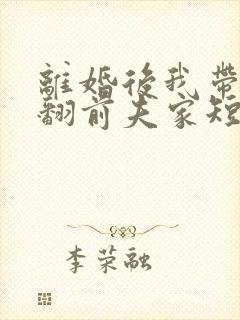 離婚後我帶
翻前夫家短
李荣融